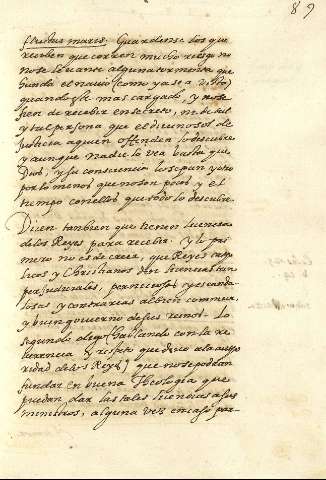 89
fluctus maris. Guardense los que
reciben que corren mucho riesgo no
no se levante alguna tormenta que
hunda el navio (como ya se a visto)
quando esté mas cargado, y no se
fien de recebir en secreto, ni de tal
y tal persona que el divino sol de
Justicia a quien offenden lo descubre
y aunque nadie lo vea basta que
Dios, y su consciencia lo sepan y otro
por lo menos que no son pocos y el
tiempo con ellos que todo lo descubre.
Dicen tambien que tienen licencia
de los Reyes para recebir. Y lo pri
mero no es de creer, que Reyes catho
licos y Christianos den licencias tan
perjudiciales, perniciosas y escanda
losas y contrarias al bien commun,
y buen govierno de sus reinos. Lo
segundo alego (hablando con la re
verencia y respeto que devo a la autho
ridad de los Reyes) que no se podrian
fundar en buena Theologia que
puedan dar las tales licencias a sus
ministros, alguna vez en caso par-